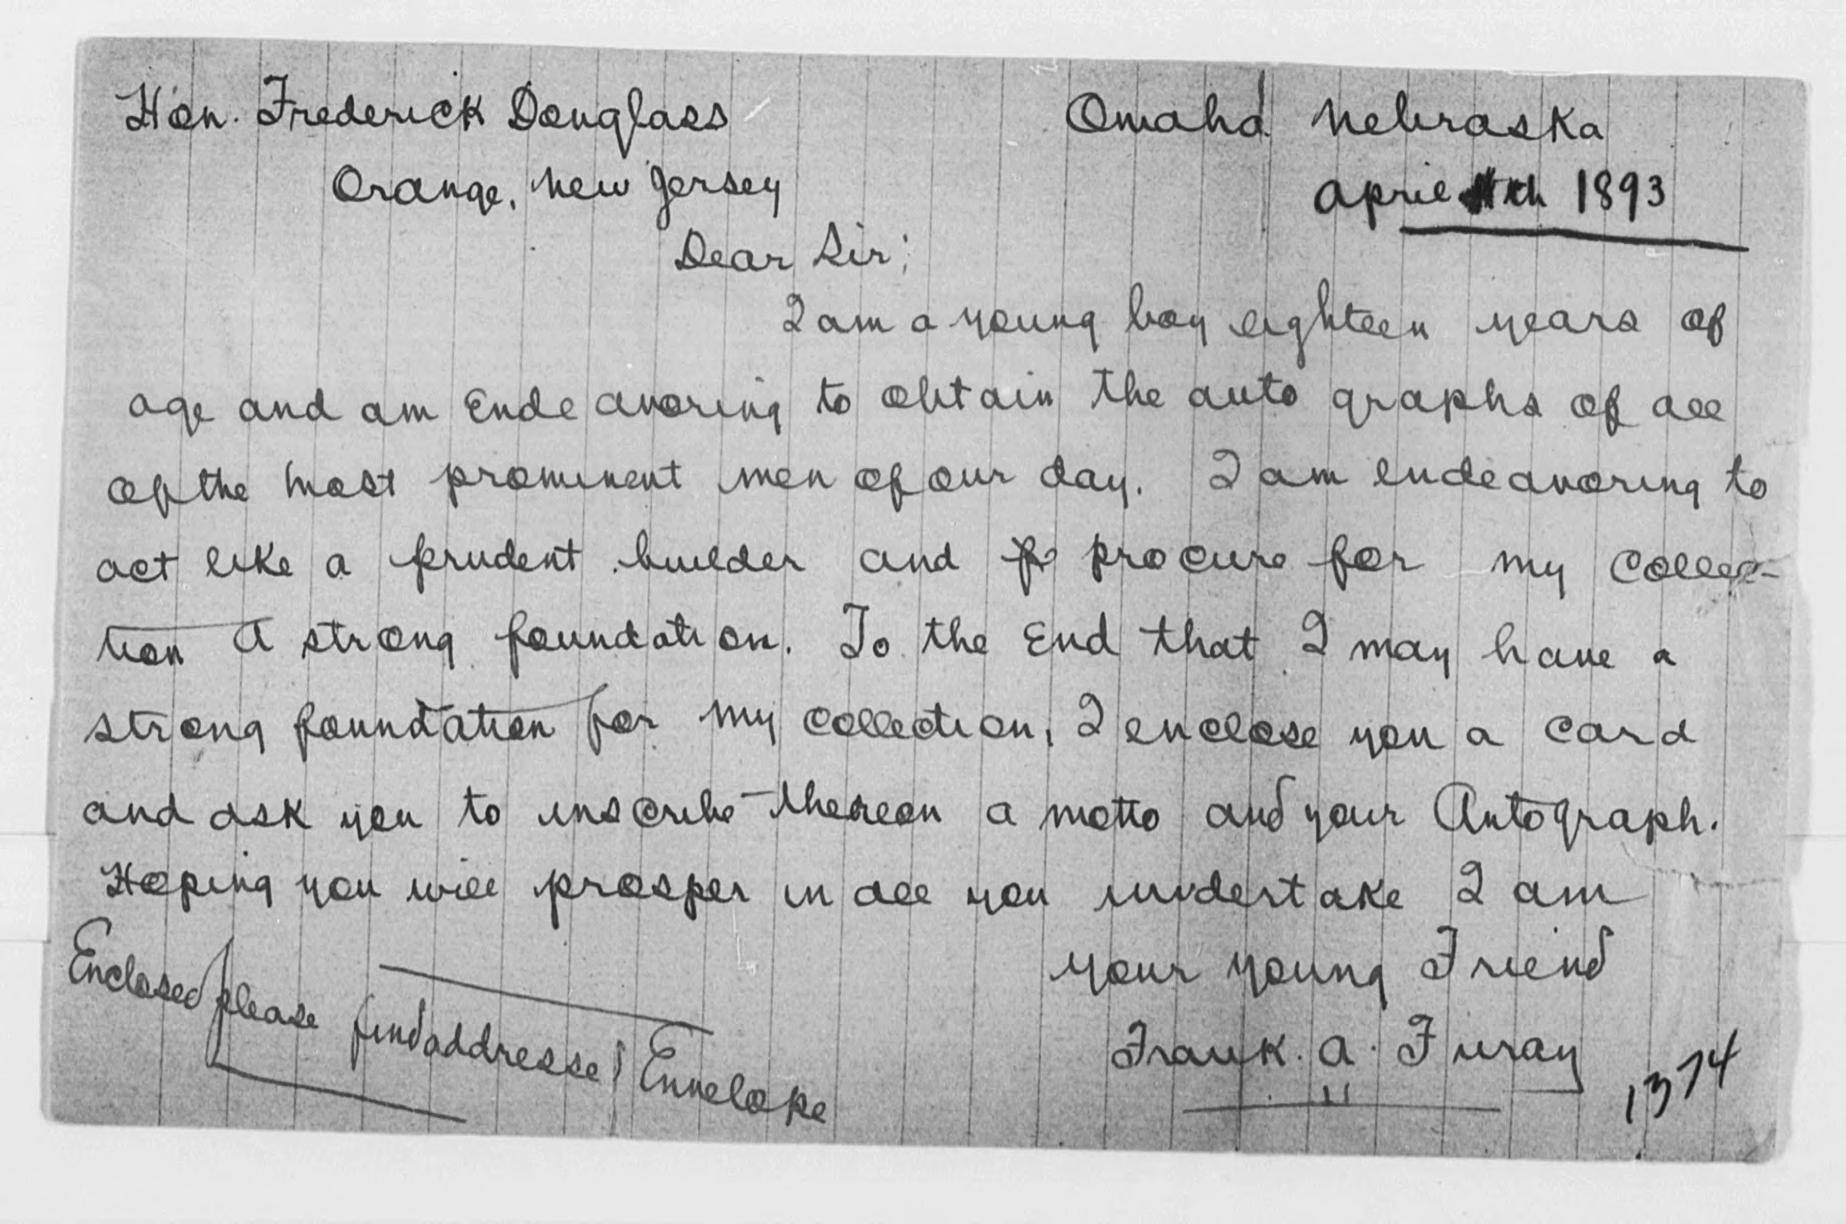 Hon. Frederick Douglass
Omaha Nebraska
Orange, New Jersey
April 11th 1893
Dear Sir;
I am a young boy eighteen years of
age and am Endeavoring to obtain the auto graphs of all
of the most prominent men of our day. I am endeavoring to
act like a prudent builder and procure for my collec-
tion A strong foundation. To the End that I may have a
strong foundation for my collection, I enclose you a card
and ask you to inscribe thereon a motto and your Autograph.
Hoping you will prosper in all you undertake I am
your young Friend
Frank. A. Furay
Enclosed please find addressed Envelope
1374